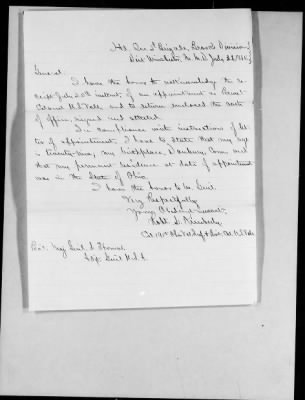 Hd. Qrs 2d Brigade, Second Division
Near Winchester, Va. July 28, 1865
General.
I have the honor to acknowledge the re-
ceipt July 20th instant, of an appointment as Brevet
Colonel U.S. Vols, and to return enclosed the oath
of office, signed and attested.
In compliance with instructions of let-
ter of appointment, I have to state that my age
is twenty-nine, my birthplace, Danbury Conn. and
that my permanent residence at date of appointment
was in the State of Ohio.
I have the honor to be, Genl.
Very Respectfully
Your Obedient Servant,
Robt. L. Kimberly.
Col 191st Ohio Vol Inf & Bvt. Col. U.S. Vols
Bvt. Maj Genl. L. Thomas
Adjt. Genl. U.S.A.